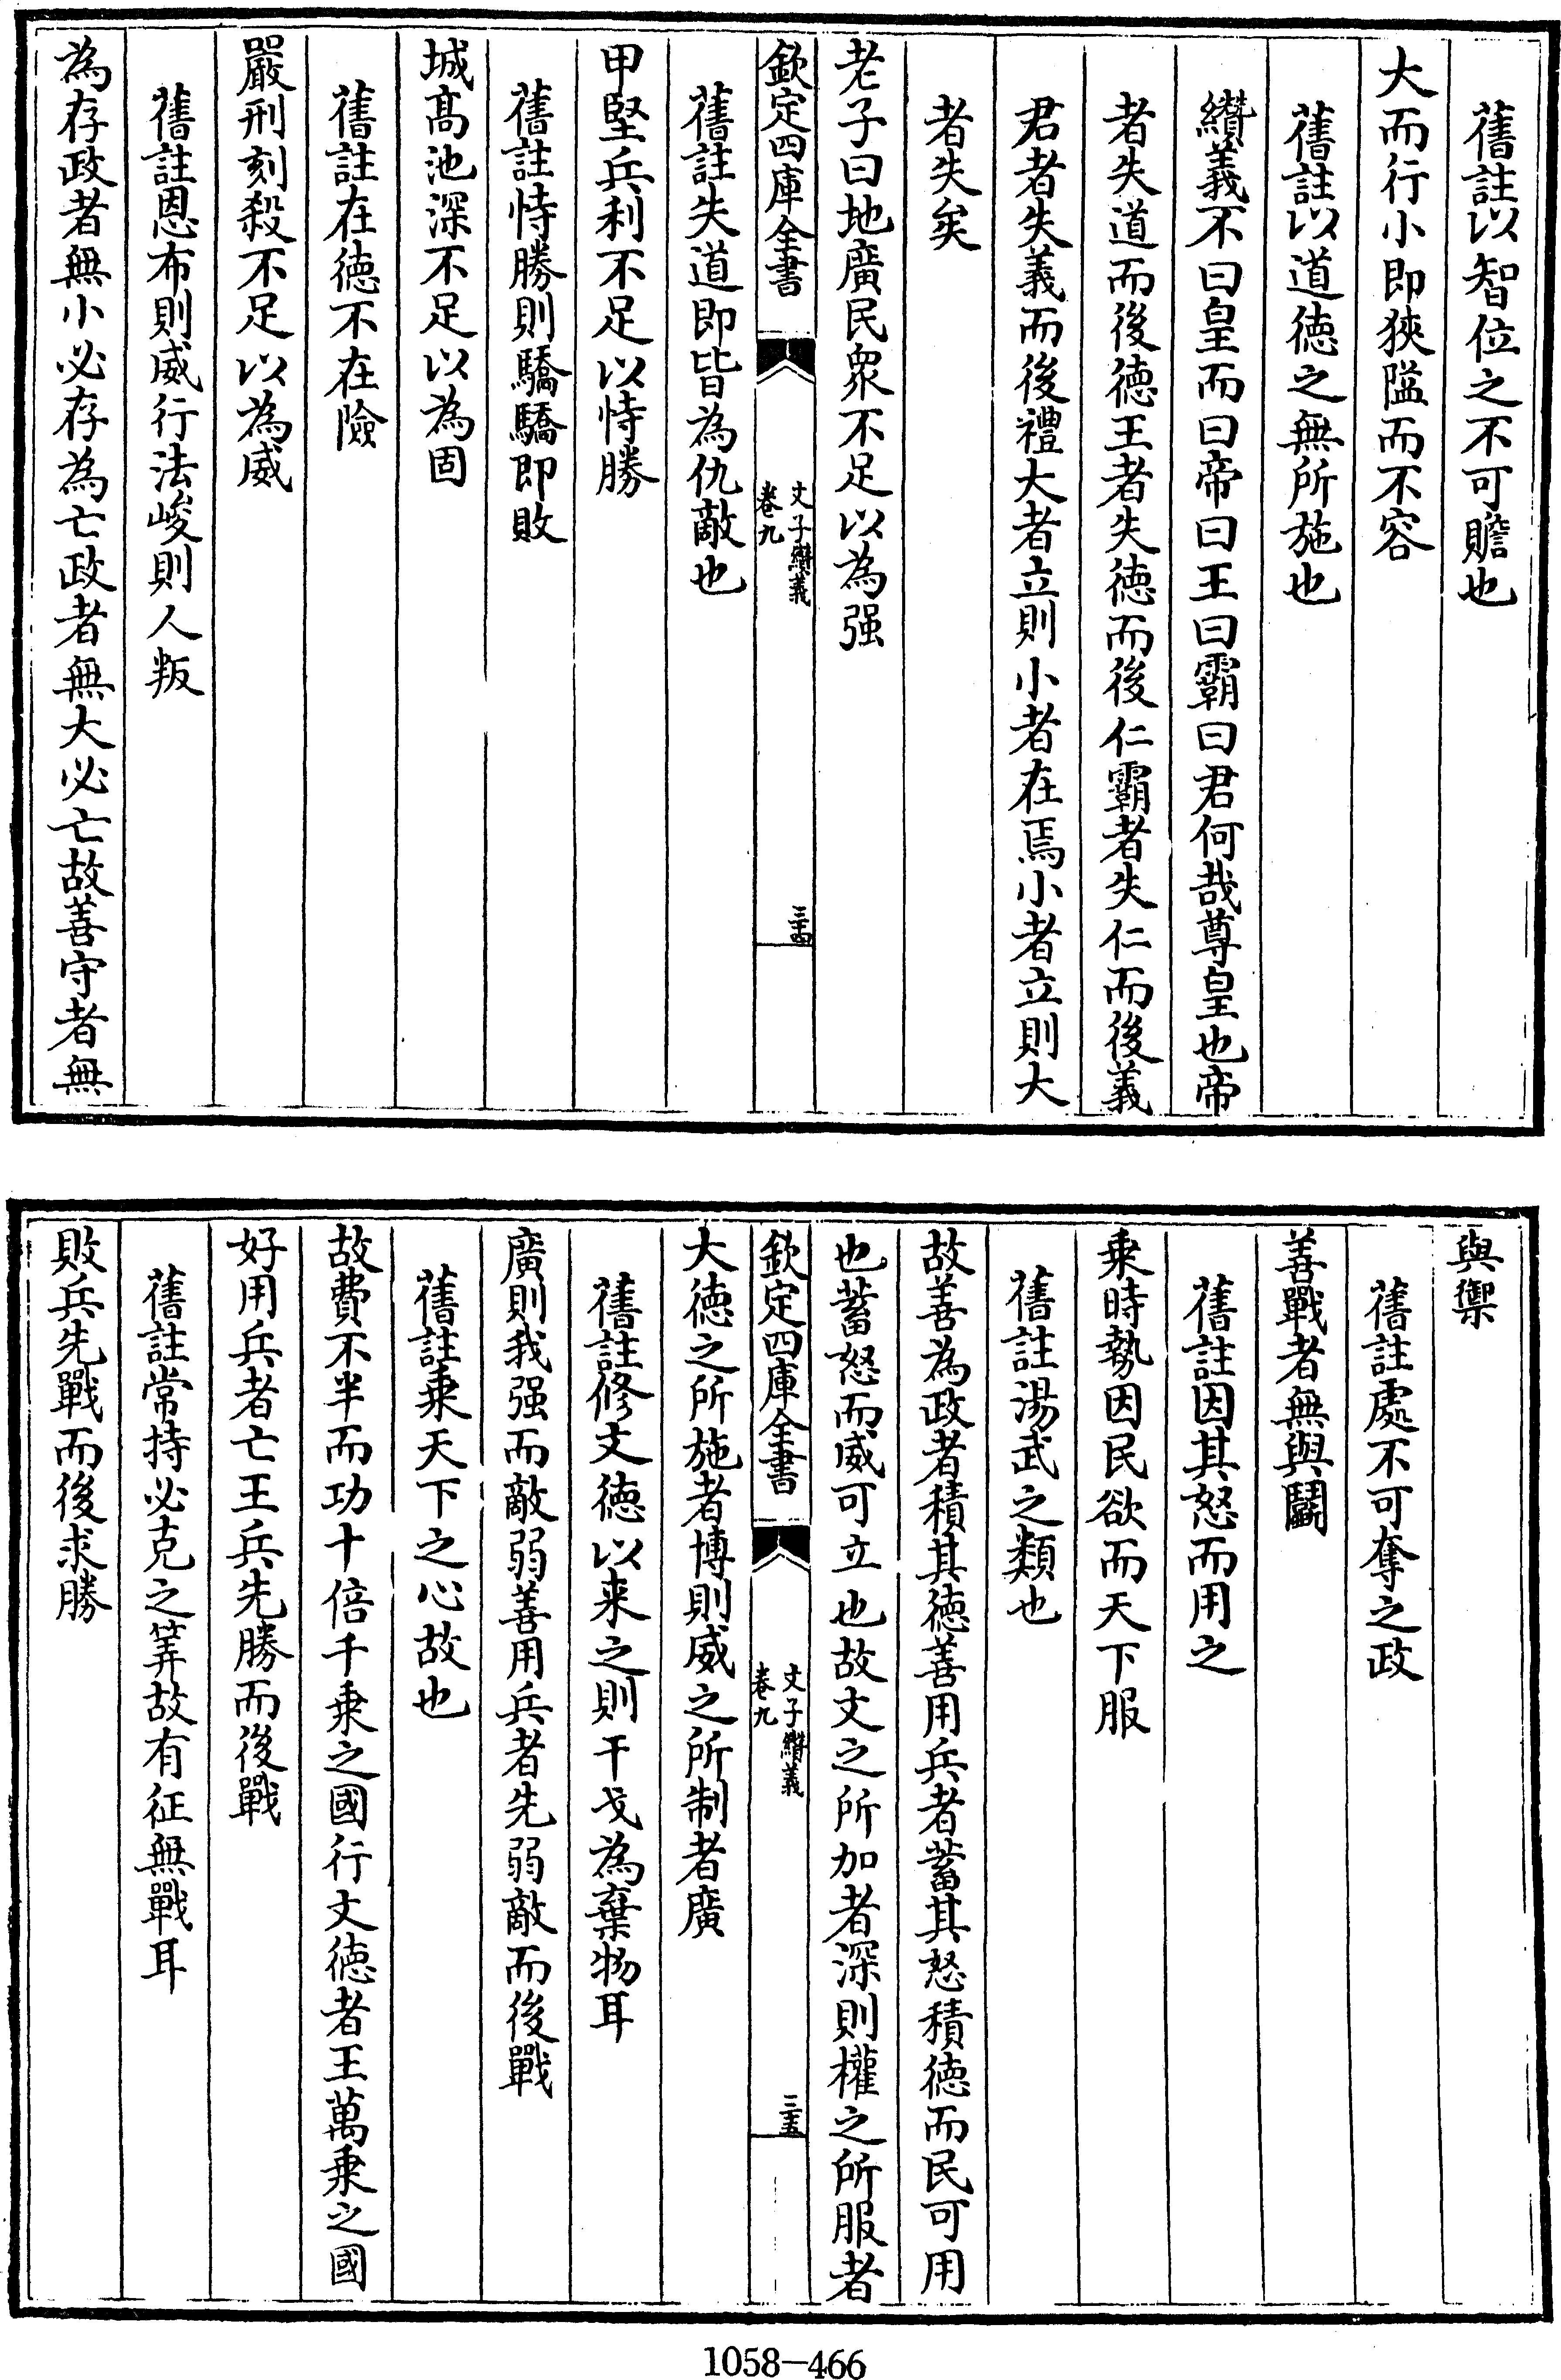 舊註以智位之不可贍也
大而行小即狹隘而不容
舊註以道徳之無所施也
纘義不曰皇而曰帝曰王曰霸曰君何哉尊皇也帝
者失道而後徳王者失徳而後仁霸者失仁而後義
君者失義而後禮大者立則小者在焉小者立則大
者失矣
老子曰地廣民衆不足以為强
欽定四庫全書
文子纘義
卷九
三十四
舊註失道即皆為仇敵也
甲堅兵利不足以恃勝
舊註恃勝則驕驕即敗
城髙池深不足以為固
舊註在徳不在險
嚴刑刻殺不足以為威
舊註恩布則威行法峻則人叛
為存政者無小必存為亡政者無大必亡故善守者無
與禦
舊註處不可奪之政
善戰者無與鬭
舊註因其怒而用之
乗時勢因民欲而天下服
舊註湯武之類也
故善為政者積其徳善用兵者蓄其怒積徳而民可用
也蓄怒而威可立也故文之所加者深則權之所服者
欽定四庫全書
文子纘義
卷九
三十五
大徳之所施者博則威之所制者廣
舊註修文徳以来之則干戈為棄物耳
廣則我强而敵弱善用兵者先弱敵而後戰
舊註乗天下之心故也
故費不半而功十倍千乗之國行文徳者王萬乗之國
好用兵者亡王兵先勝而後戰
舊註常持必克之筭故有征無戰耳
敗兵先戰而後求勝
1058-466